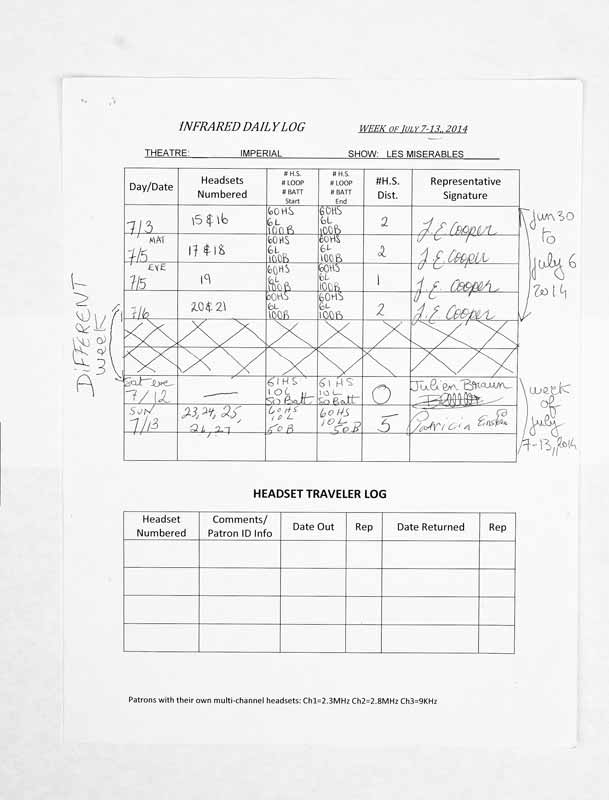 INFRARED DAILY LOG
WEEK OF JULY 7-13, 2014
THEATRE: IMPERIAL SHOW: LES MISERABLES
Day/Date Headsets Numbered # H.S. # LOOP # BATT Start # H.S. # LOOP # BATT End #H.S. Dist. Representative Signature
7/3 15 & 16 60HS 6L 100B 60HS 6L 100B 2 J.E Cooper
MAT 7/5 17 & 18 60HS 6L 100B 60HS 6L 100B 2 J.E Cooper
EVE 7/5 19 60HS 6L 100B 60HS 6L 100B 1 J.E. Cooper
7/6 20 & 21 60HS 6L 100B 60HS 6L 100B 2 J.E Cooper
Jun 30
to
July 6
2014
DIFFERENT
week
Sat eve 7/12 — 61HS 10L 50 Batt 61HS 10L 50 Batt 0 Julien Braun
SUN 7/13 23, 24, 25, 26, 27 60HS 10L 50B 60HS 10L 50B 5 Patricia Einstein
week
of
July
7-13, 2014
HEADSET TRAVELER LOG
Headset Numbered Comments/ Patron ID Info Date Out Rep Date Returned Rep
Patrons with their own multi-channel headsets: Ch1=2.3MHz Ch2=2.8MHz Ch3=9KHz